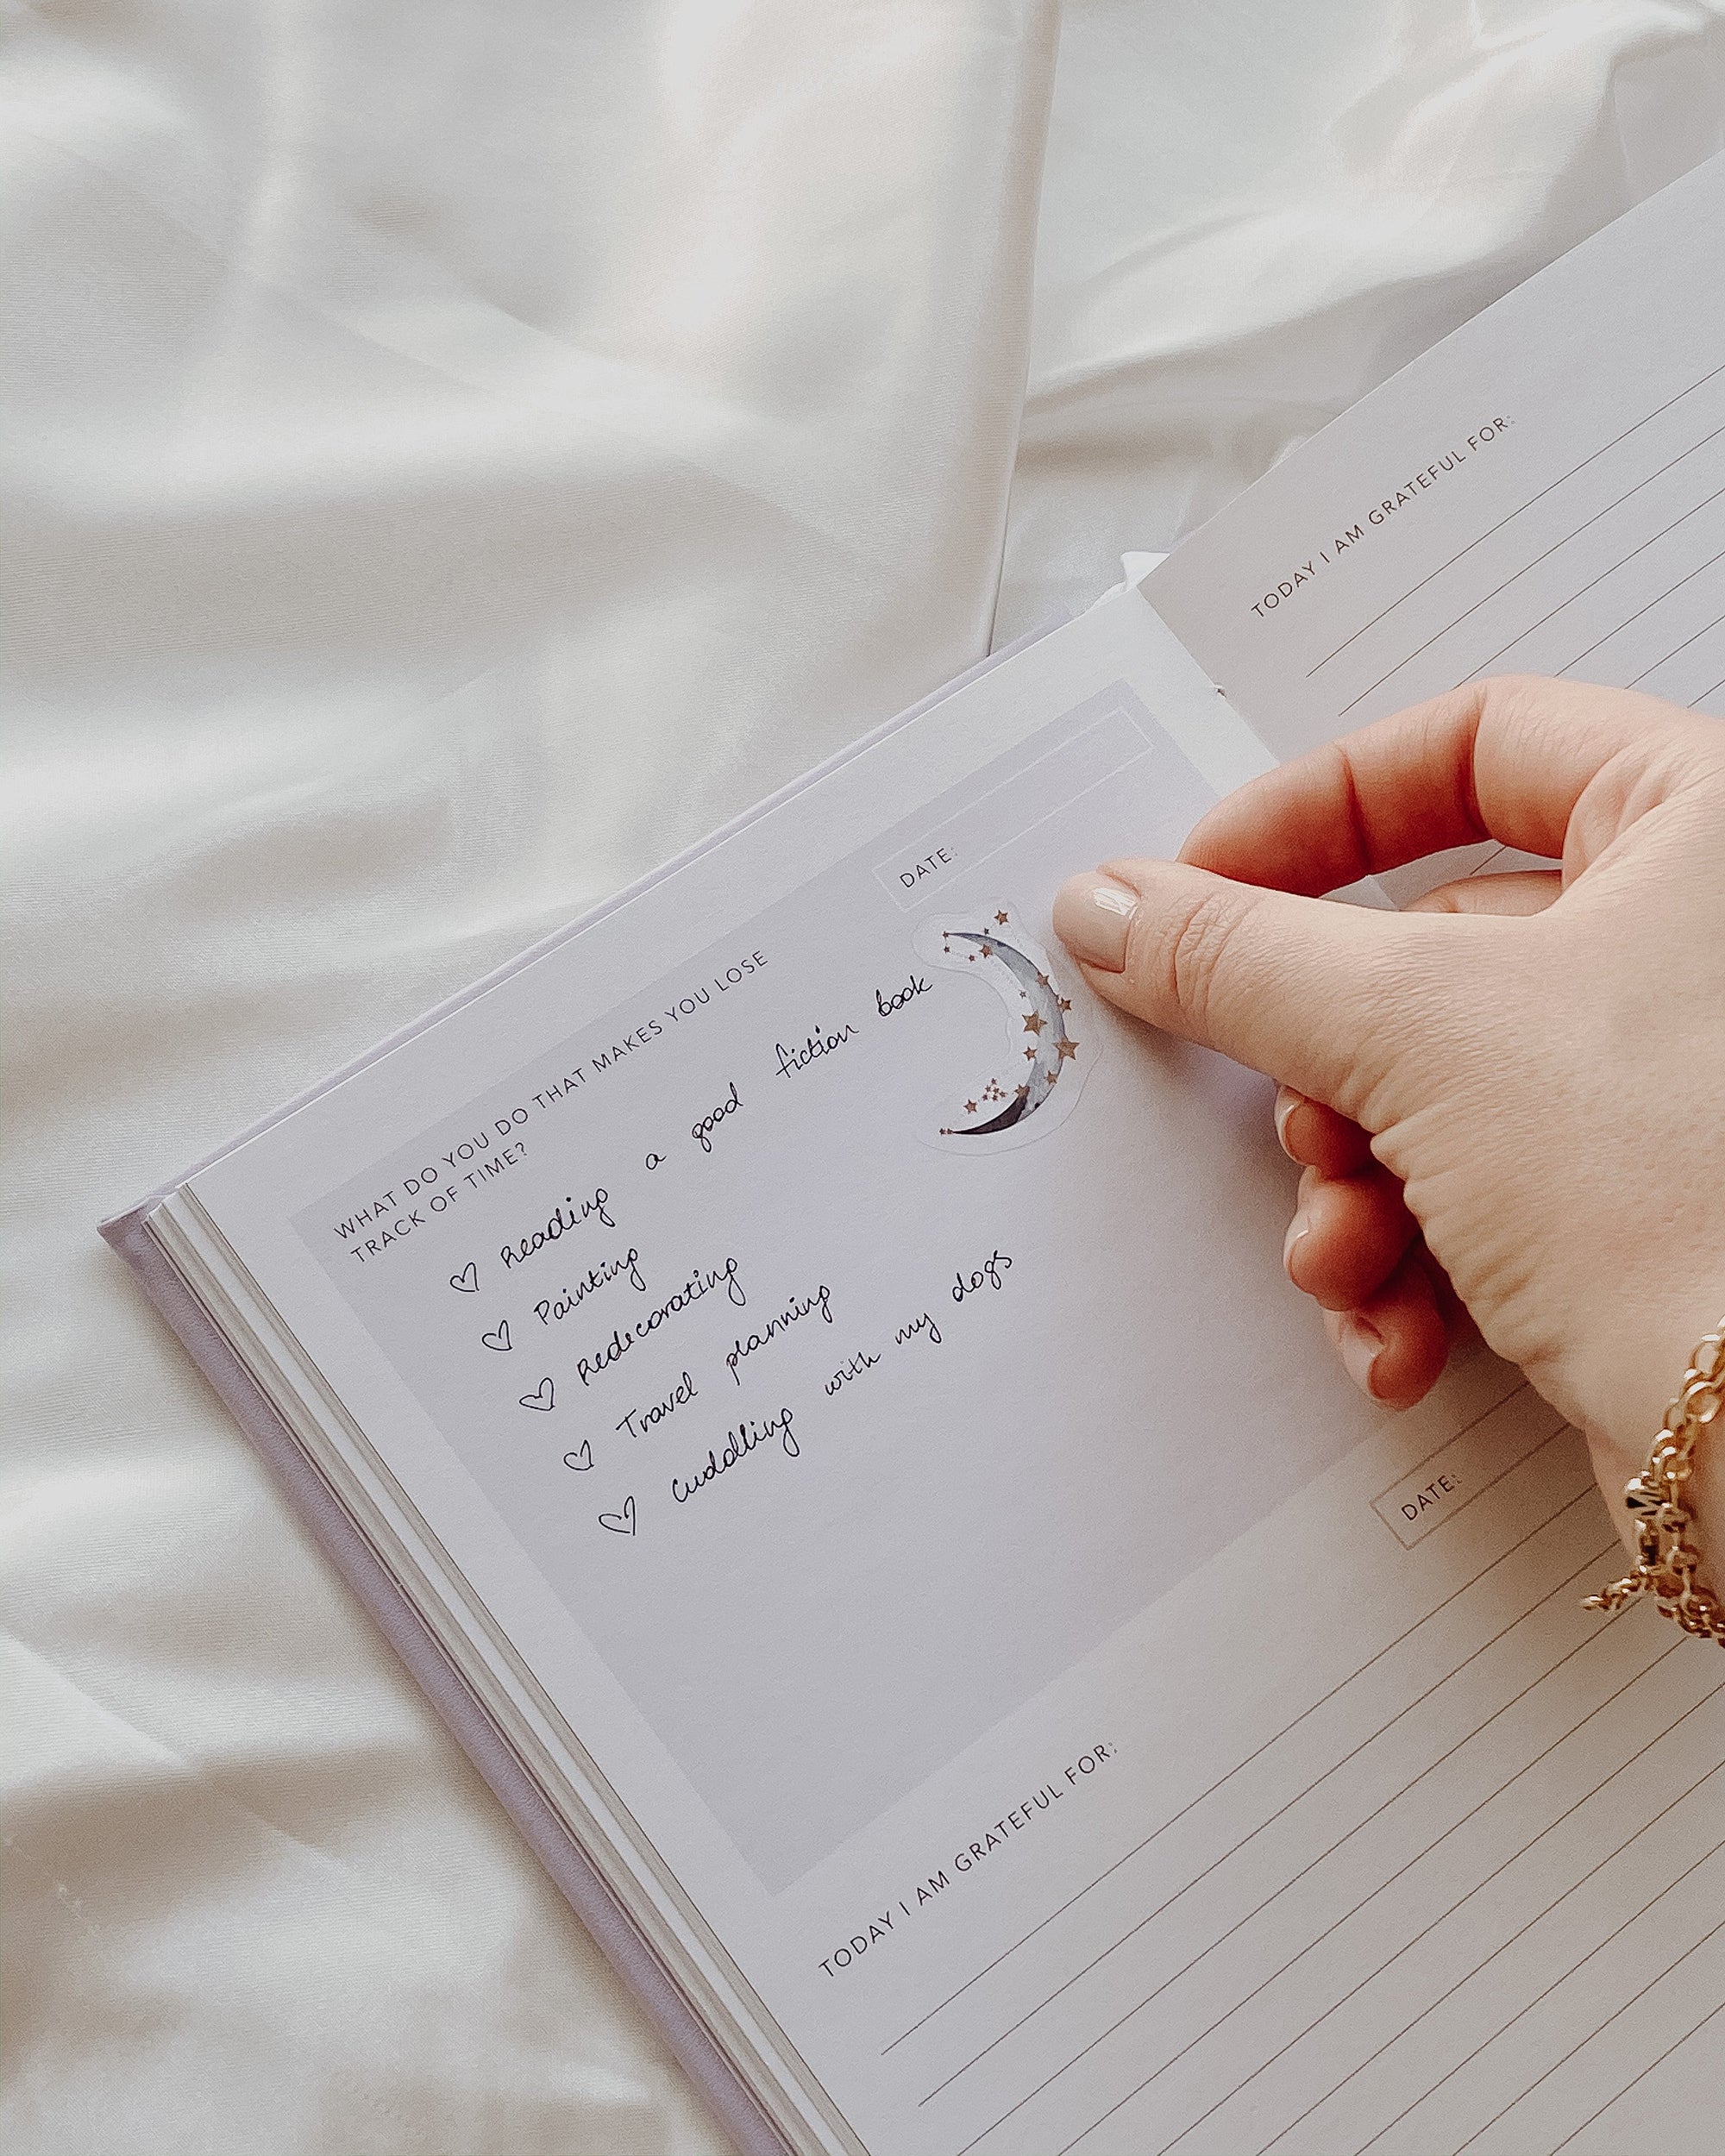 DATE:
WHAT DO YOU DO THAT MAKES YOU LOSE
TRACK OF TIME?
♡ Reading a good fiction book
♡ Painting
♡ Redecorating
♡ Travel planning
♡ Cuddling with my dogs
TODAY I AM GRATEFUL FOR:
TODAY I AM GRATEFUL FOR:
DATE: